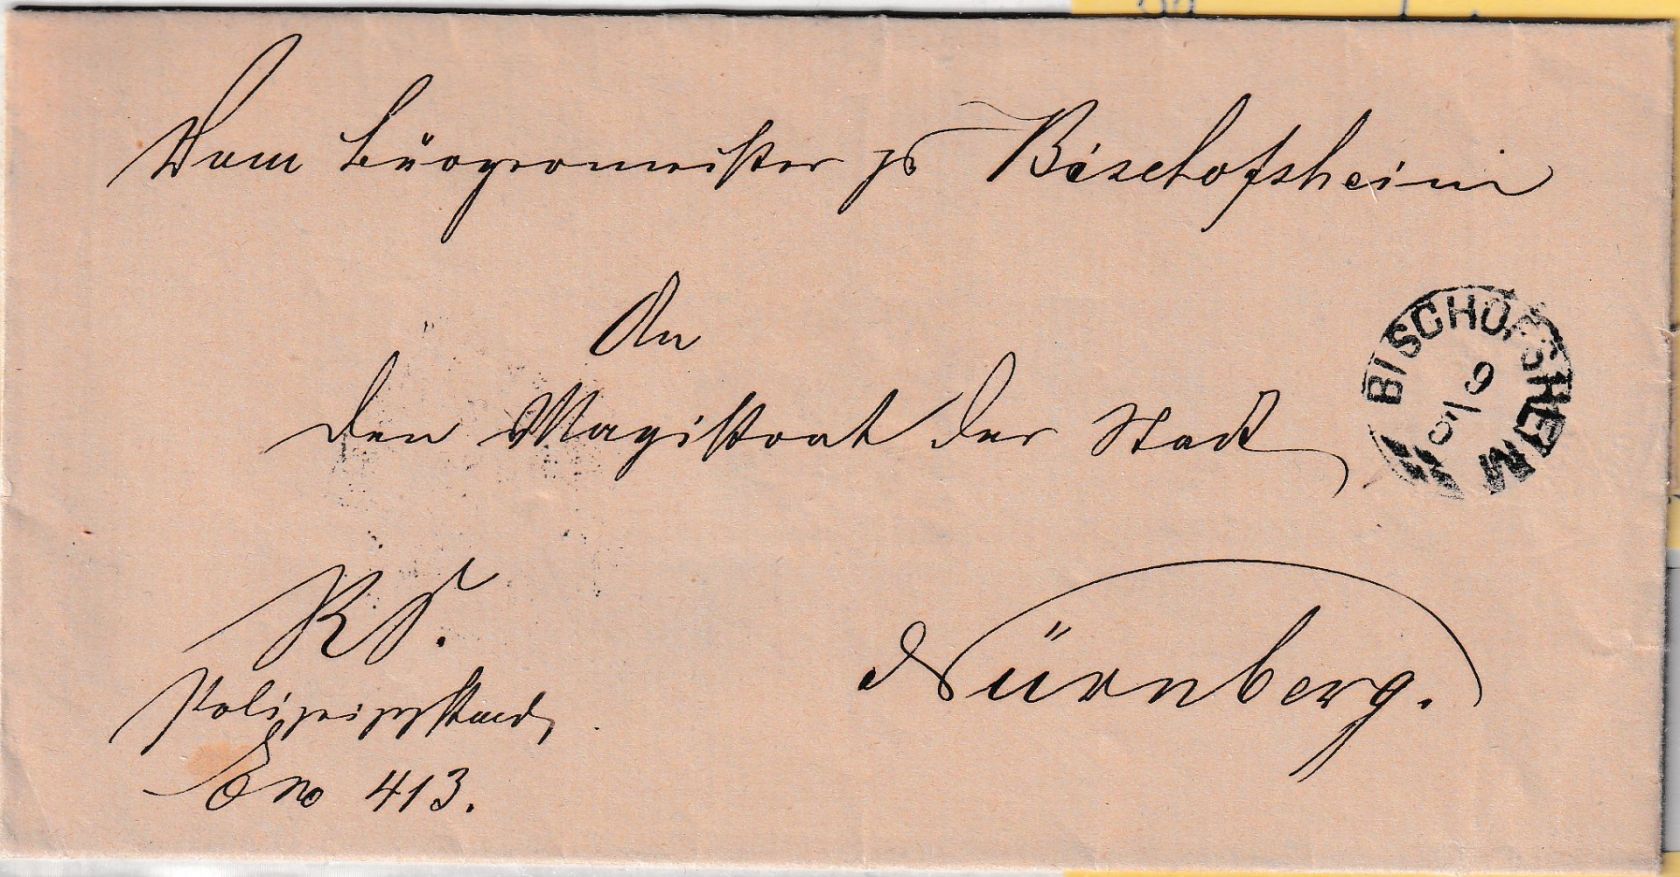 Vom Bürgermeister zu Bischofsheim
An
den Magistrat der Stadt
BISCHOFSHEIM
9
R.S.
Nürnberg.
Polizeigegenstand
E No 413.